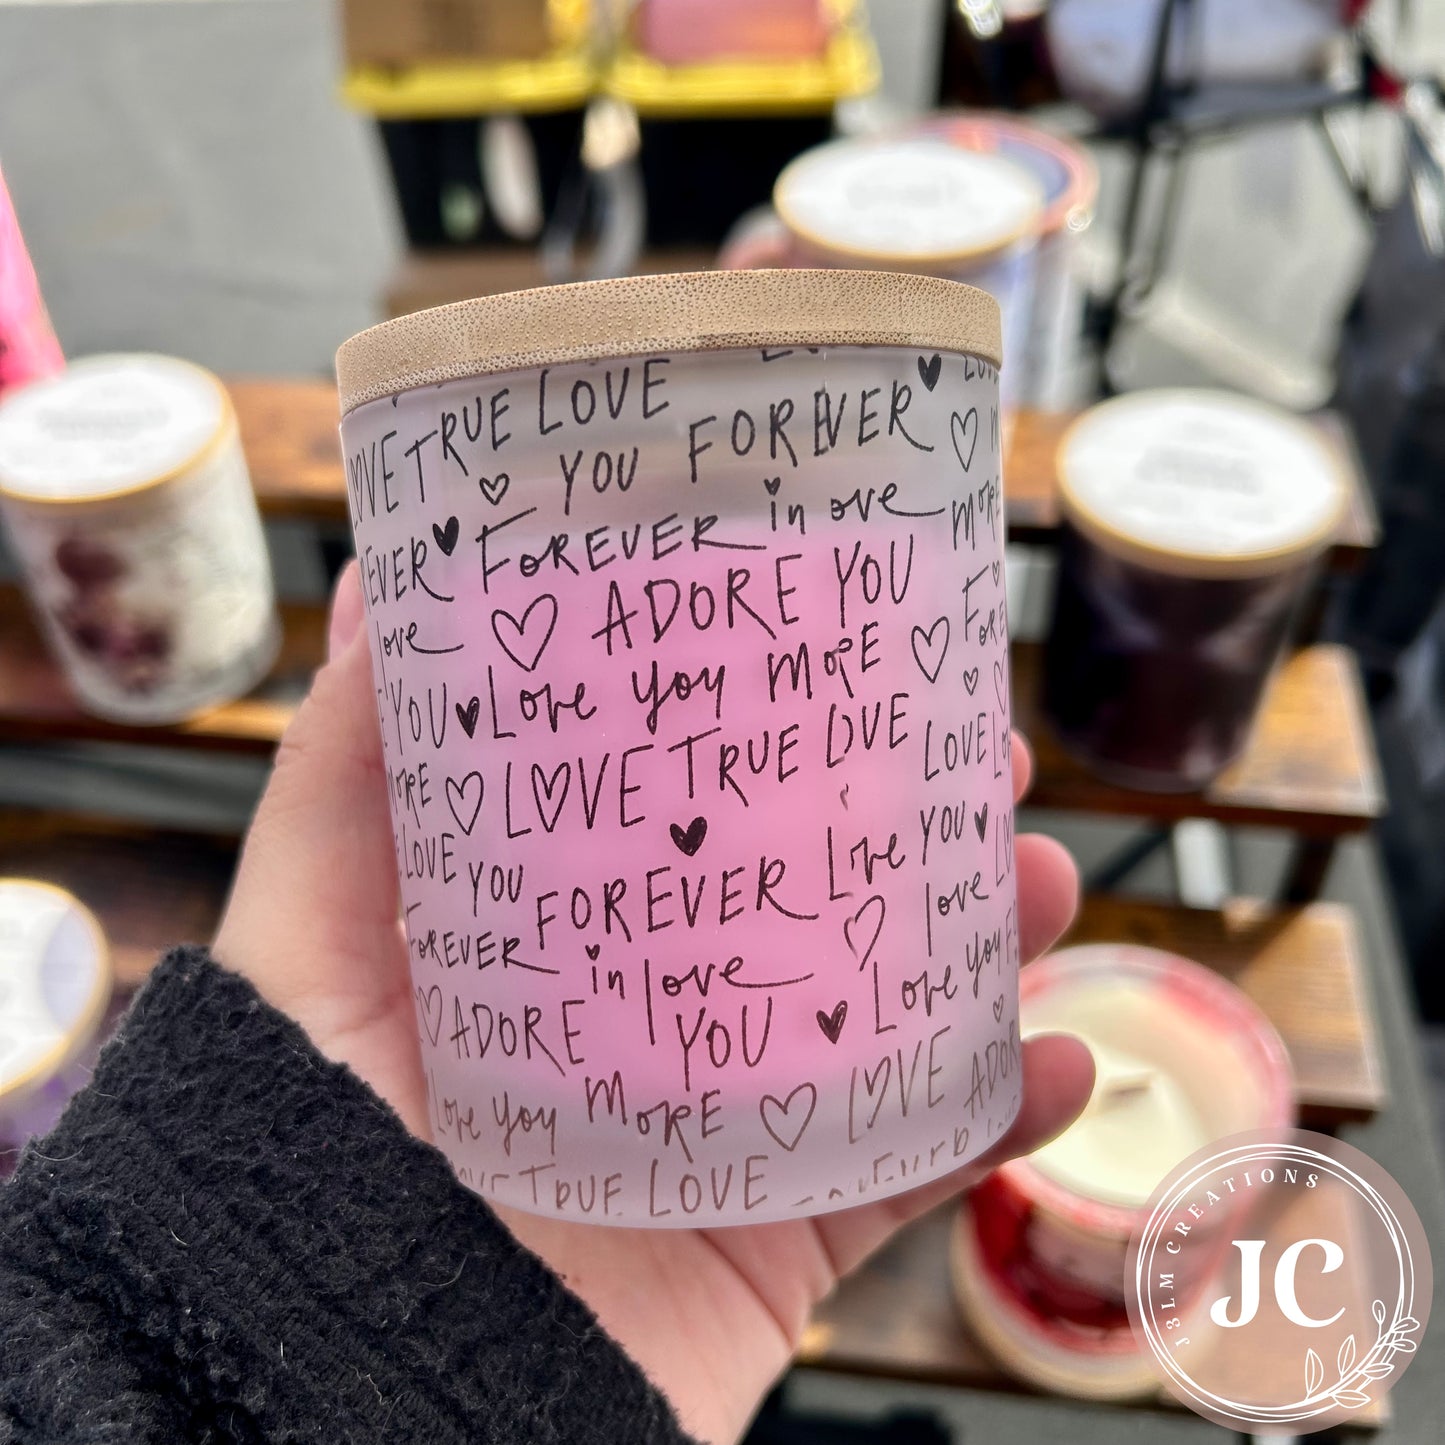 TRUE LOVE
LOVE
YOU FOREVER
EVER
FOREVER in ove
love
ADORE YOU
YOU Love you more
MORE
LOVE TRUE LOVE
LOVE
LOVE YOU
FOREVER Love you
FOREVER in love
love
ADORE YOU
Love you
Love you MORE
LOVE
ADOR
TRUE LOVE
J3LM CREATIONS
JC